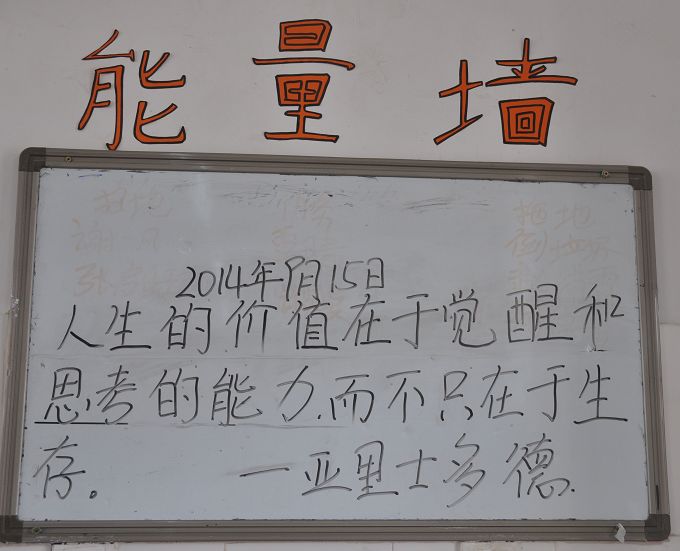 能量墙
拖地
2014年9月15日
人生的价值在于觉醒和
思考的能力.而不只在于生
存。 —亚里士多德.